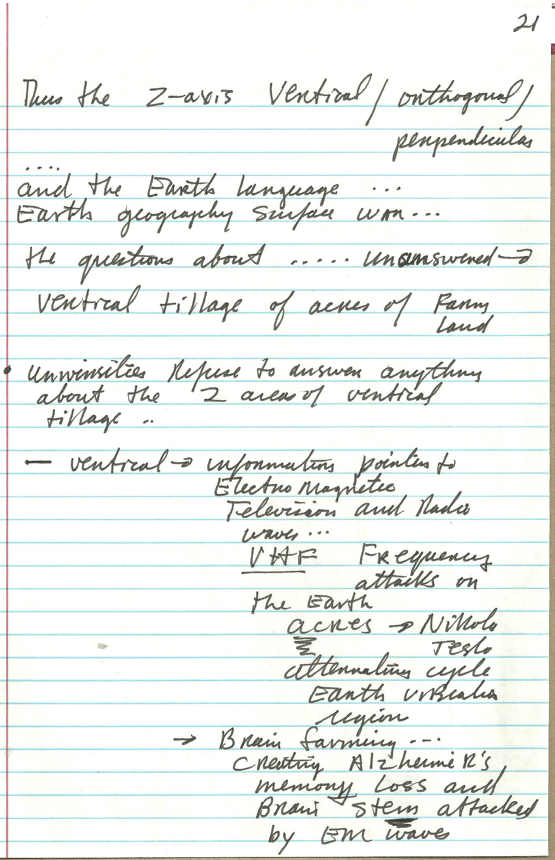 21
Thus the Z-axis Vertical / orthogonal /
perpendicular
....
and the Earth language ...
Earth geography Surface war...
the questions about ..... unanswered →
Vertical tillage of acres of Farm
Land
• Universities Refuse to answer anything
about the Z areas of vertical
tillage ..
← vertical → information pointers to
Electro Magnetic
Television and Radio
waves ...
VHF Frequency
attacks on
the Earth
acres → Nikola
Tesla
alternating cycle
Earth vibration
region
→ Brain farming ...
creating AlzheimeR's
memory Loss and
Brain Stem attacked
by EM waves